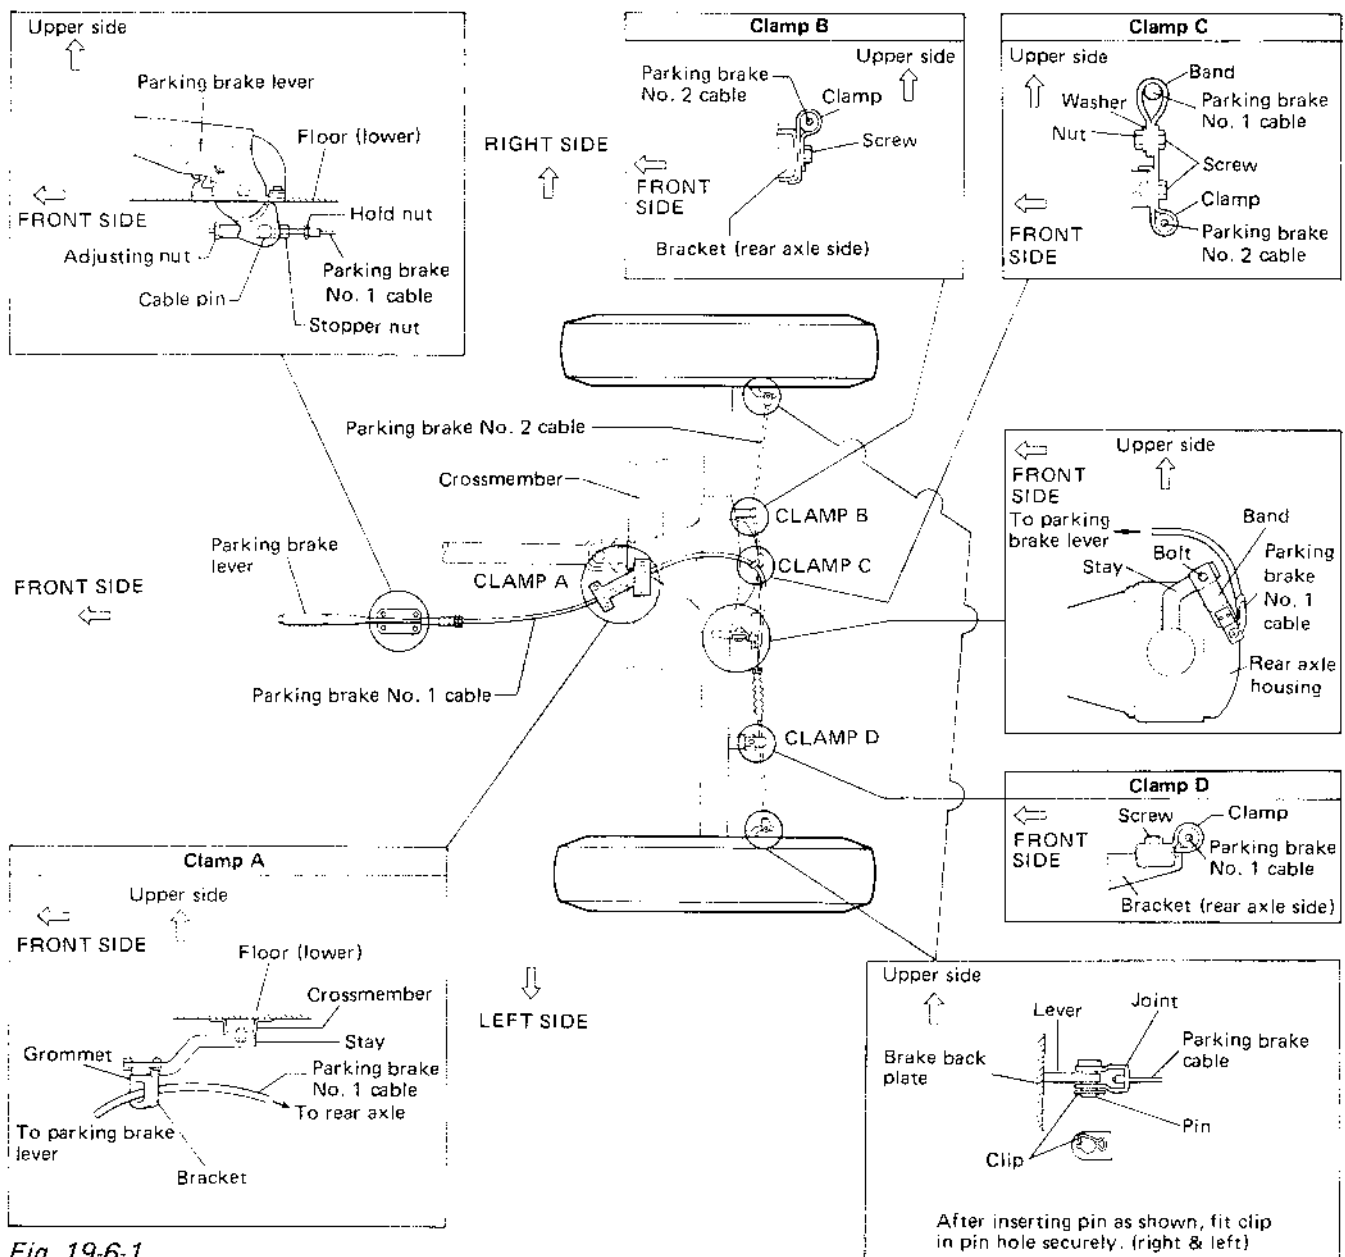 Upper side
Parking brake lever
Floor (lower)
FRONT SIDE
Hold nut
Adjusting nut
Parking brake
No. 1 cable
Cable pin
Stopper nut
RIGHT SIDE
Clamp B
Upper side
Parking brake
No. 2 cable
Clamp
Screw
FRONT
SIDE
Bracket (rear axle side)
Clamp C
Upper side
Band
Washer
Parking brake
No. 1 cable
Nut
Screw
Clamp
FRONT
SIDE
Parking brake
No. 2 cable
Parking brake No. 2 cable
Crossmember
CLAMP B
Parking brake
lever
CLAMP A
CLAMP C
FRONT SIDE
Parking brake No. 1 cable
CLAMP D
Upper side
FRONT
SIDE
To parking
brake lever
Band
Bolt
Stay
Parking
brake
No. 1
cable
Rear axle
housing
Clamp D
Screw
Clamp
FRONT
SIDE
Parking brake
No. 1 cable
Bracket (rear axle side)
Clamp A
Upper side
FRONT SIDE
Floor (lower)
Crossmember
Stay
Grommet
Parking brake
No. 1 cable
To rear axle
To parking brake
lever
Bracket
LEFT SIDE
Upper side
Lever
Joint
Brake back
plate
Parking brake
cable
Pin
Clip
After inserting pin as shown, fit clip
in pin hole securely. (right & left)
Fig. 19-6-1